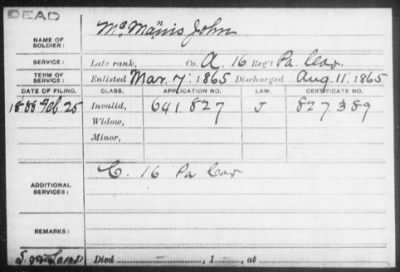 DEAD
NAME OF SOLDIER: McManis John
SERVICE: Late rank, Co. A. 16 Reg't Pa. Cav.
TERM OF SERVICE: Enlisted Mar. 7: 1865 Discharged Aug. 11: 1865
DATE OF FILING. CLASS. APPLICATION NO. LAW. CERTIFICATE NO.
1888 Feb. 25 Invalid, 641.827 J 827389
Widow,
Minor,
ADDITIONAL SERVICES: C. 16 Pa Cav
REMARKS:
Died , 1 , at